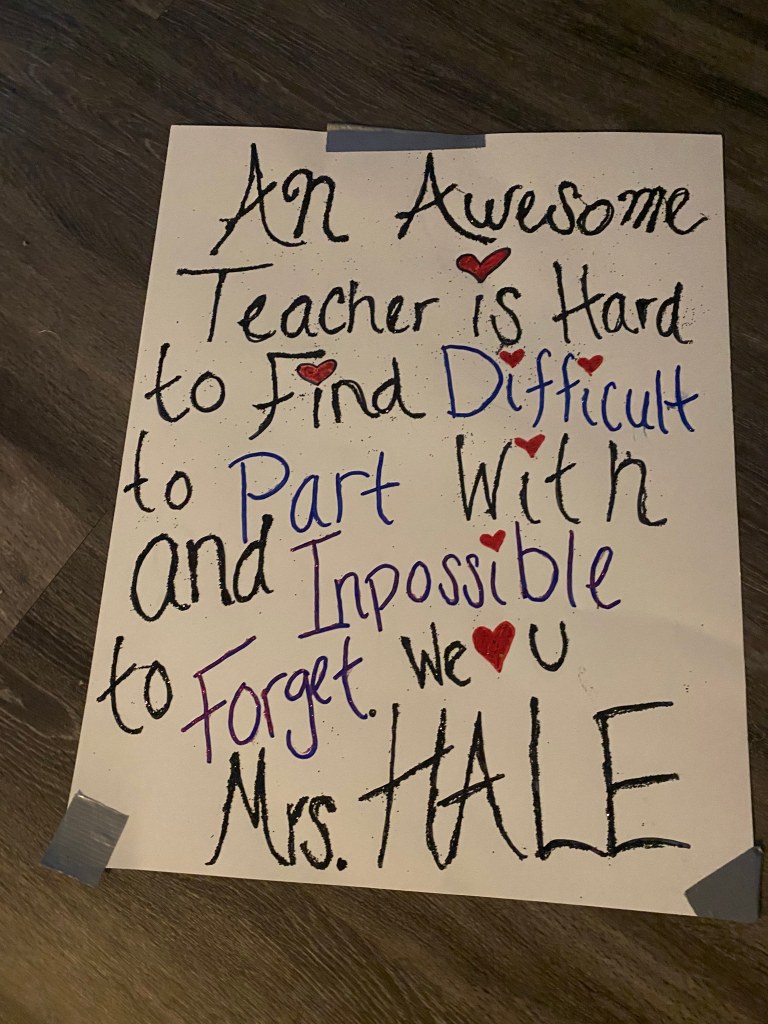 An Awesome
Teacher is Hard
to Find Difficult
to Part With
and Inpossible
to Forget. We ❤ U
Mrs. HALE